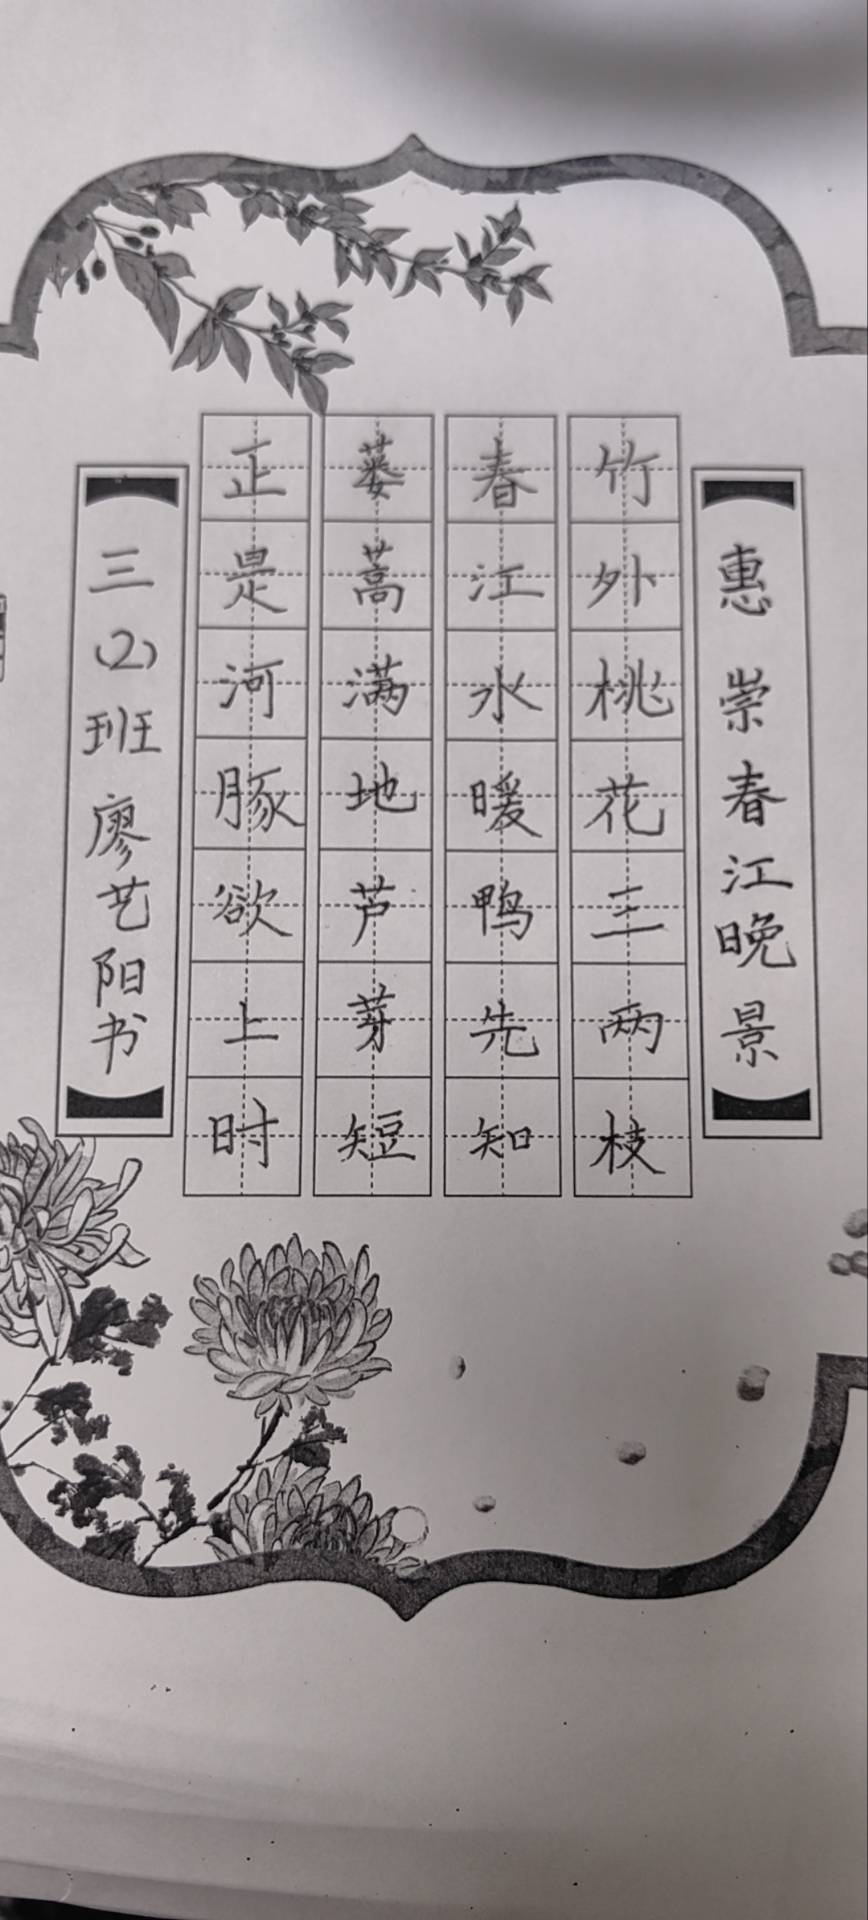 惠崇春江晚景
竹外桃花三两枝
春江水暖鸭先知
蒌蒿满地芦芽短
正是河豚欲上时
三(2)班廖艺阳书